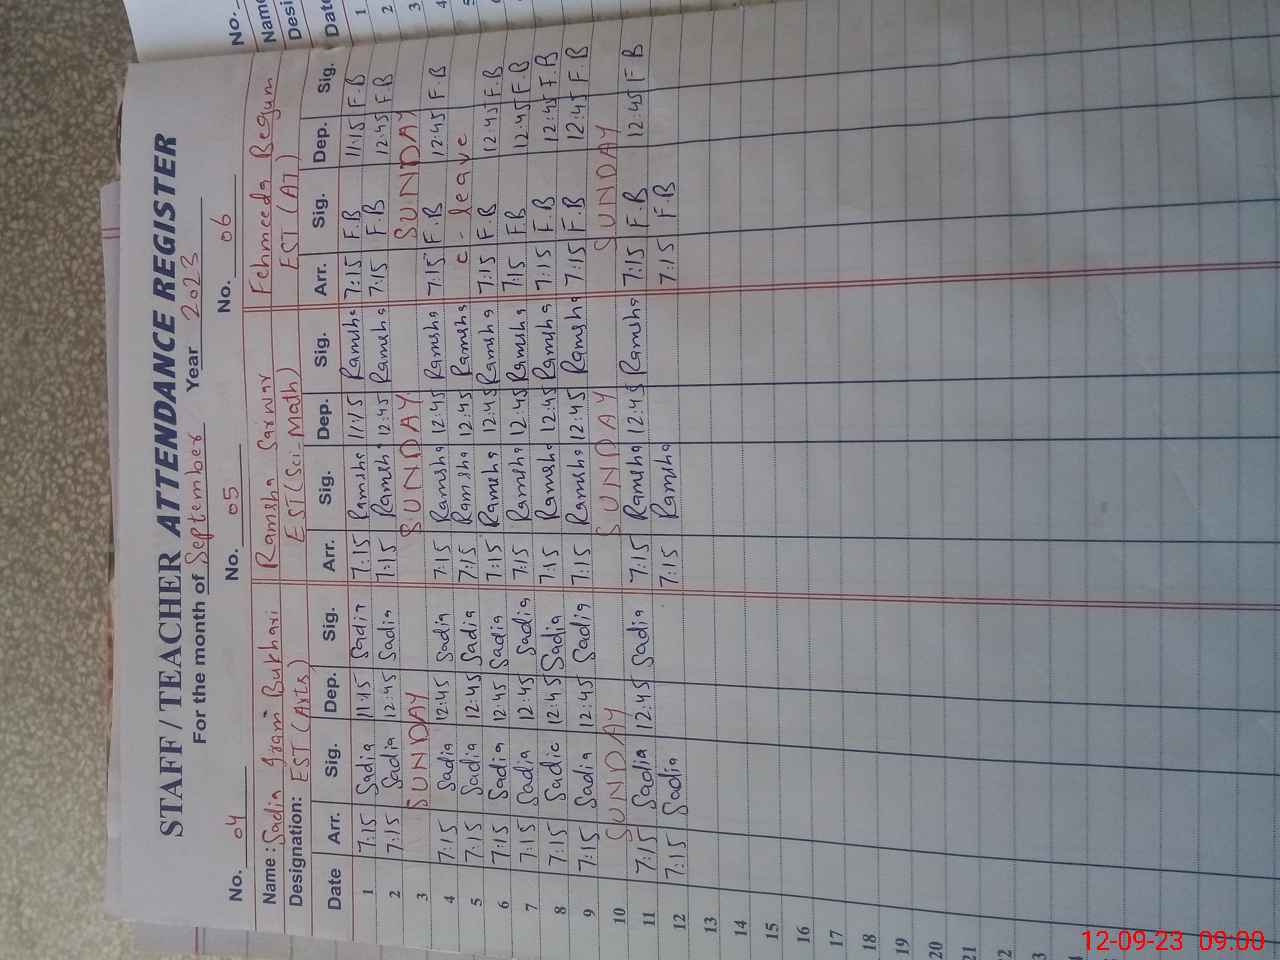 STAFF / TEACHER ATTENDANCE REGISTER
For the month of September Year 2023
No. 04 No. 05 No. 06
Name : Sadia Iram Bukhari Ramsha Sarwar Fehmeeda Begum
Designation: EST (Arts) EST (Sci-Math) EST (AT)
Date Arr. Sig. Dep. Sig. Arr. Sig. Dep. Sig. Arr. Sig. Dep. Sig.
1 7:15 Sadia 11:15 Sadia 7:15 Ramsha 11:15 Ramsha 7:15 F.B 11:15 F.B
2 7:15 Sadia 12:45 Sadia 7:15 Ramsha 12:45 Ramsha 7:15 F.B 12:45 F.B
3 SUNDAY SUNDAY SUNDAY
4 7:15 Sadia 12:45 Sadia 7:15 Ramsha 12:45 Ramsha 7:15 F.B 12:45 F.B
5 7:15 Sadia 12:45 Sadia 7:15 Ramsha 12:45 Ramsha c - leave
6 7:15 Sadia 12:45 Sadia 7:15 Ramsha 12:45 Ramsha 7:15 F.B 12:45 F.B
7 7:15 Sadia 12:45 Sadia 7:15 Ramsha 12:45 Ramsha 7:15 F.B 12:45 F.B
8 7:15 Sadia 12:45 Sadia 7:15 Ramsha 12:45 Ramsha 7:15 F.B 12:45 F.B
9 7:15 Sadia 12:45 Sadia 7:15 Ramsha 12:45 Ramsha 7:15 F.B 12:45 F.B
10 SUNDAY SUNDAY SUNDAY
11 7:15 Sadia 12:45 Sadia 7:15 Ramsha 12:45 Ramsha 7:15 F.B 12:45 F.B
12 7:15 Sadia 7:15 Ramsha 7:15 F.B
13
14
15
16
17
18
19
20
21
No.
Date
1
2
3
4
12-09-23 09:00